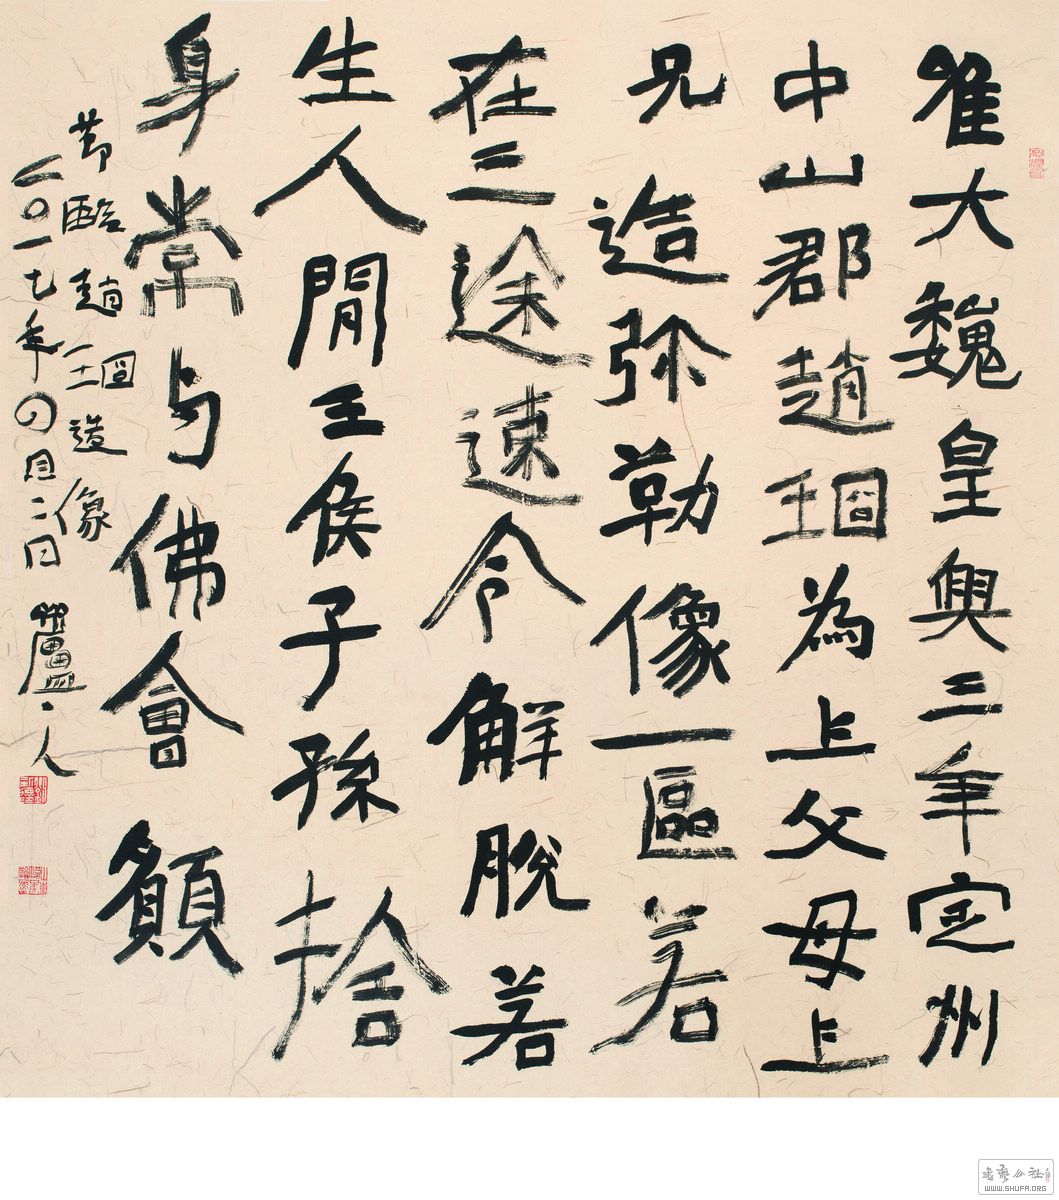 唯大魏皇興三年定州
中山郡趙珚為上父母上
兄造弥勒像一區若
在三途速令解脫若
生人閒王侯子孫捨
身常与佛會 願
節臨趙珚造像
二〇一七年四月二日
书艺公社
WWW.SHUFA.ORG